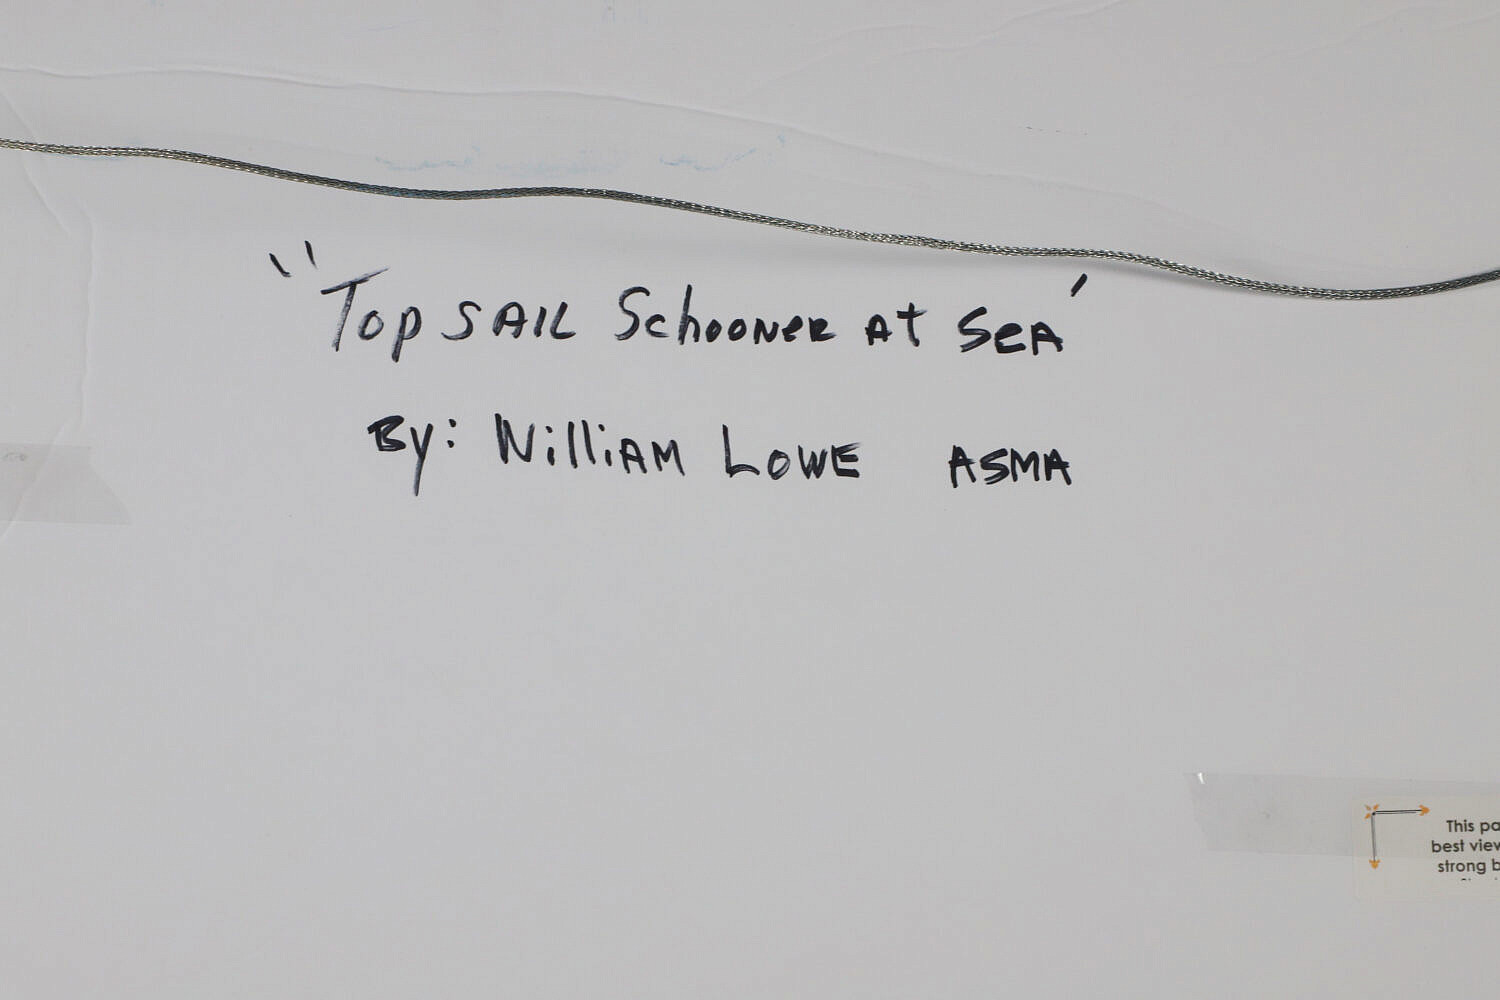 "Topsail Schooner at Sea'
By: William Lowe ASMA
This pa
best view
strong b